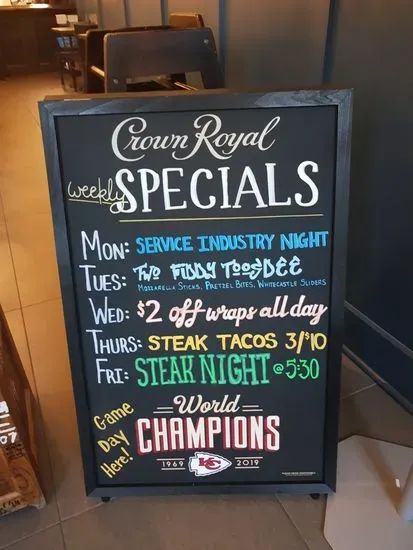 Crown Royal
weekly SPECIALS
MON: SERVICE INDUSTRY NIGHT
TUES: TWO FIDDY TOOSDEE
MOZZARELLA STICKS, PRETZEL BITES, WHITECASTLE SLIDERS
WED: $2 off wraps all day
THURS: STEAK TACOS 3/$10
FRI: STEAK NIGHT @ 5:30
Game Day Here!
World
CHAMPIONS
1969 KC 2019
07